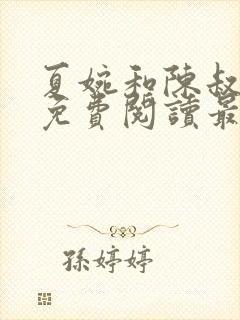 夏婉和陳叔
免費閱讀最
孫婷婷